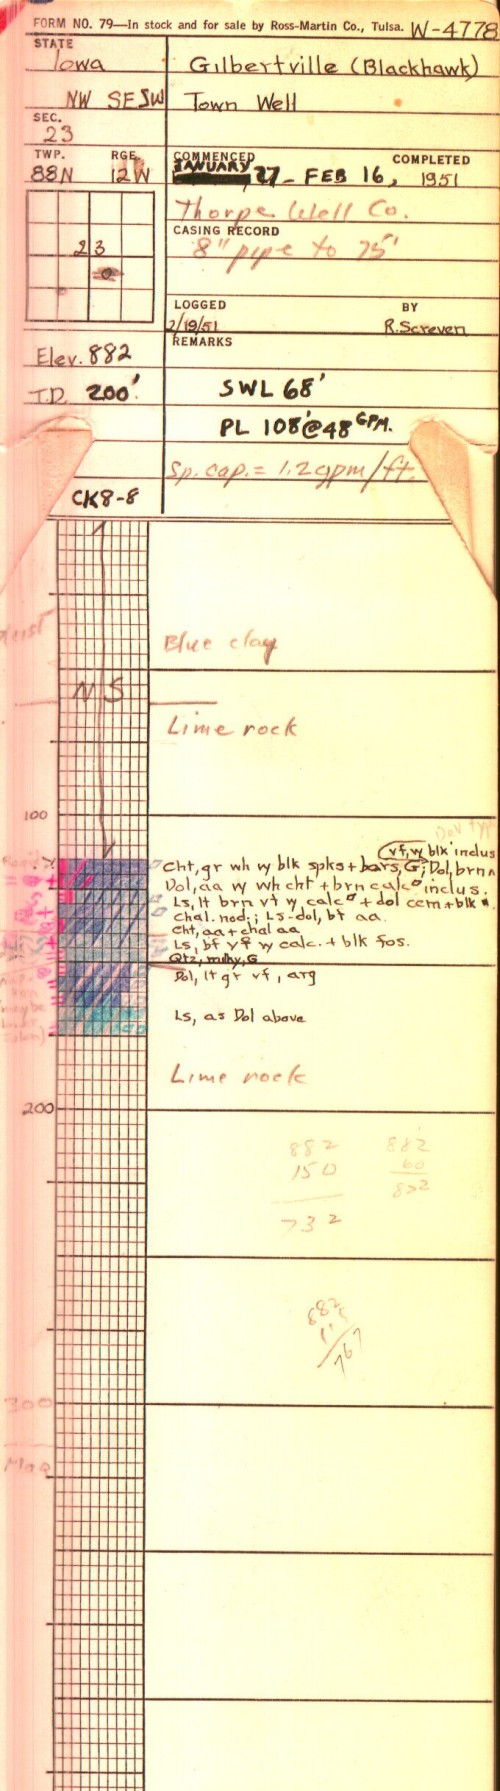 FORM NO. 79—In stock and for sale by Ross-Martin Co., Tulsa. W-4778
STATE
Iowa
Gilbertville (Blackhawk)
NW SE SW Town Well
SEC.
23
TWP. RGE.
88N 12W
COMMENCED COMPLETED
JANUARY 27 - FEB 16, 1951
Thorpe Well Co.
CASING RECORD
8" pipe to 75'
23
LOGGED BY
2/19/51 R. Screven
REMARKS
Elev. 882
T.D. 200'
SWL 68'
PL 108'@48 GPM.
Sp. cap. = 1.2 gpm/ft.
CK8-8
Blue clay
NS
Lime rock
100
vf, w blk inclus
Cht, gr wh w blk spks + bars, G; Dol, brn
Dol, aa w wh cht + brn calc inclus.
Ls, lt brn vf w calc + dol cem + blk
Chal. nod.; Ls-dol, bf aa.
Cht, aa + chal aa
Ls, bf vf w calc. + blk fos.
Qtz, milky, G
Dol, lt gr vf, arg
Ls, as Dol above
Lime rock
200
882 882
150 60
732 822
882
115
767
300
Maq